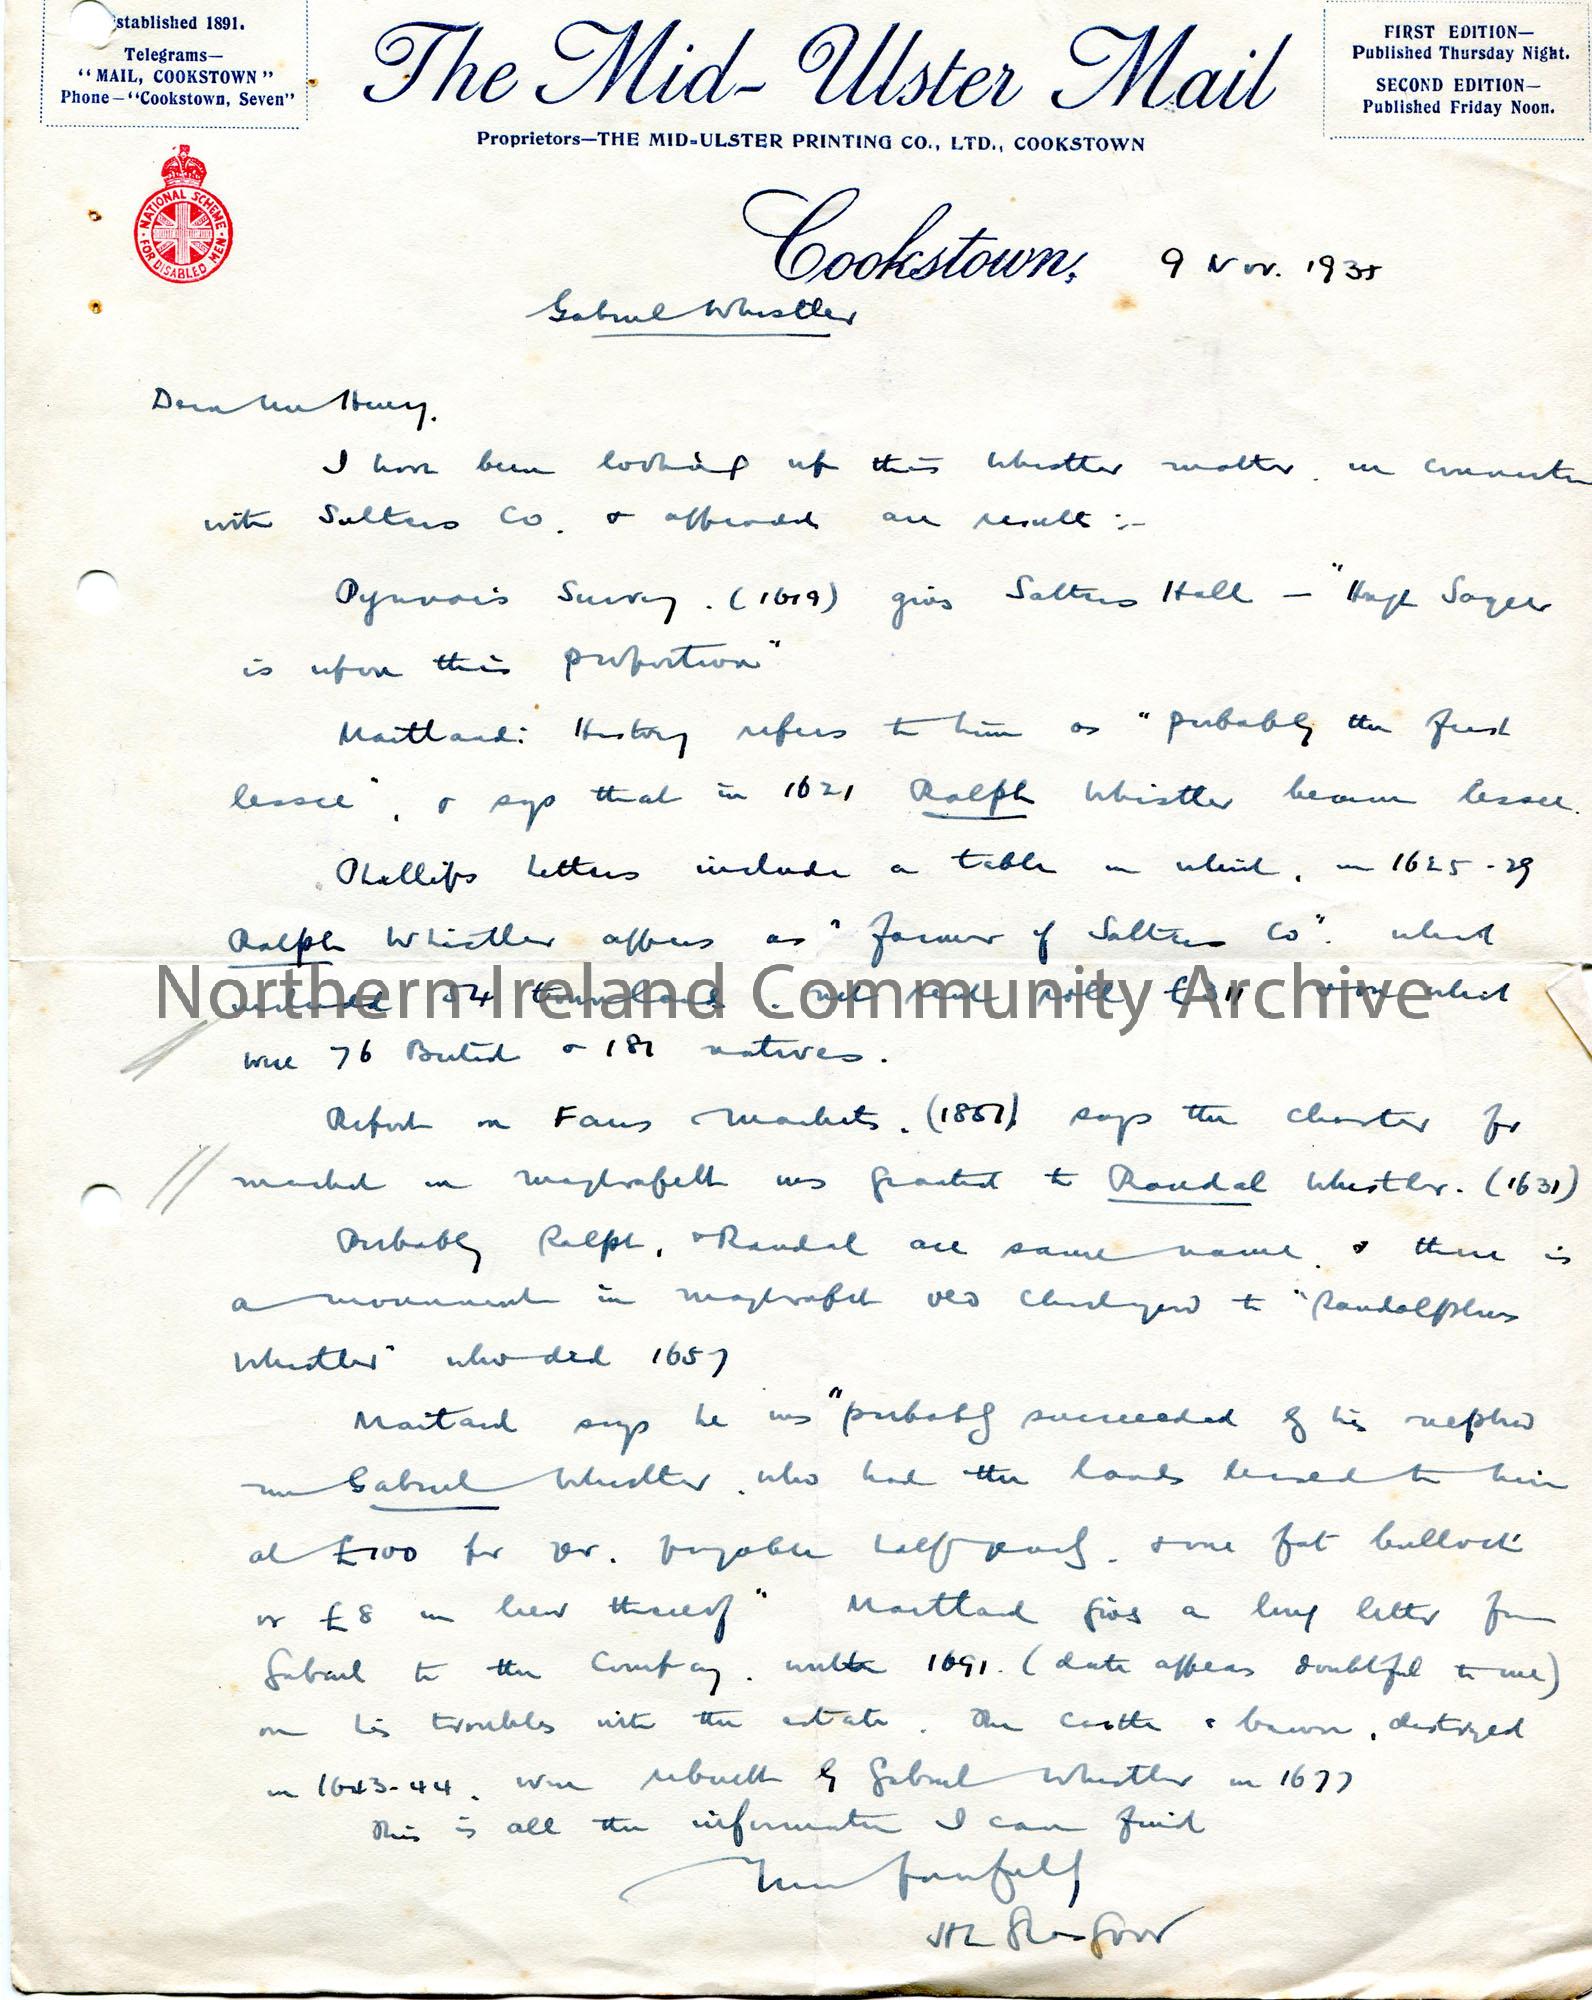 Established 1891.
Telegrams—
"MAIL, COOKSTOWN"
Phone—"Cookstown, Seven"
The Mid-Ulster Mail
Proprietors—THE MID-ULSTER PRINTING CO., LTD., COOKSTOWN
FIRST EDITION—
Published Thursday Night.
SECOND EDITION—
Published Friday Noon.
NATIONAL SCHEME
FOR DISABLED MEN
Cookstown, 9 Nov. 1935
Gabriel Whistler
Dear Mr Huey.
I have been looking up this Whistler matter in connection
with Salters Co. & appended are results :-
Pynnar's Survey. (1619) gives Salters Hall — "Hugh Sayer
is upon this proportion"
Maitland: History refers to him as "probably the first
lessee", & says that in 1621 Ralph Whistler became lessee.
Phillips Letters include a table in which, in 1625-29
Ralph Whistler appears as "farmer of Salters Co". which
included 54 townlands. net rent roll £311 & on which
were 76 British & 181 natives.
Report on Fairs Markets. (1887) says the charter for
market in Magherafelt was granted to Randal Whistler. (1631)
Probably Ralph, & Randal are same name & there is
a monument in Magherafelt old churchyard to "Randolphus
Whistler" who died 1657
Maitland says he was "probably succeeded by his nephew
Gabriel Whistler, who had the lands leased to him
at £100 per yr. payable half yearly. & one fat bullock
or £8 in lieu thereof" Maitland gives a long letter from
Gabriel to the Company. 1691. (date appears doubtful to me)
on his troubles with the estate. The castle & bawn, destroyed
in 1643-44. were rebuilt by Gabriel Whistler in 1677
This is all the information I can find
Yours faithfully
HL Glasgow
Northern Ireland Community Archive